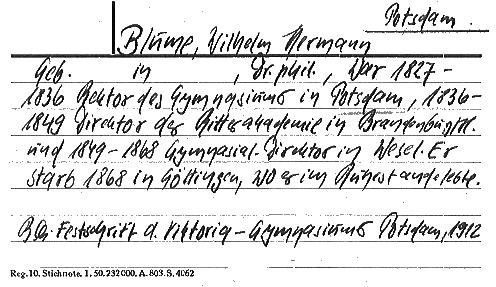 Potsdam.
Blume, Wilhelm Hermann
Geb. in , Dr. phil., War 1827-
1836 Rektor des Gymnasiums in Potsdam, 1836-
1849 Direktor der Ritterakademie in Brandenburg/H.
und 1849-1868 Gymnasial-Direktor in Wesel. Er
starb 1868 in Göttingen, wo er im Ruhestand lebte.
Festschrift d. Viktoria-Gymnasiums Potsdam, 1912
Reg. 10. Stichnote. 1. 50. 232000. A. 803. S. 4062